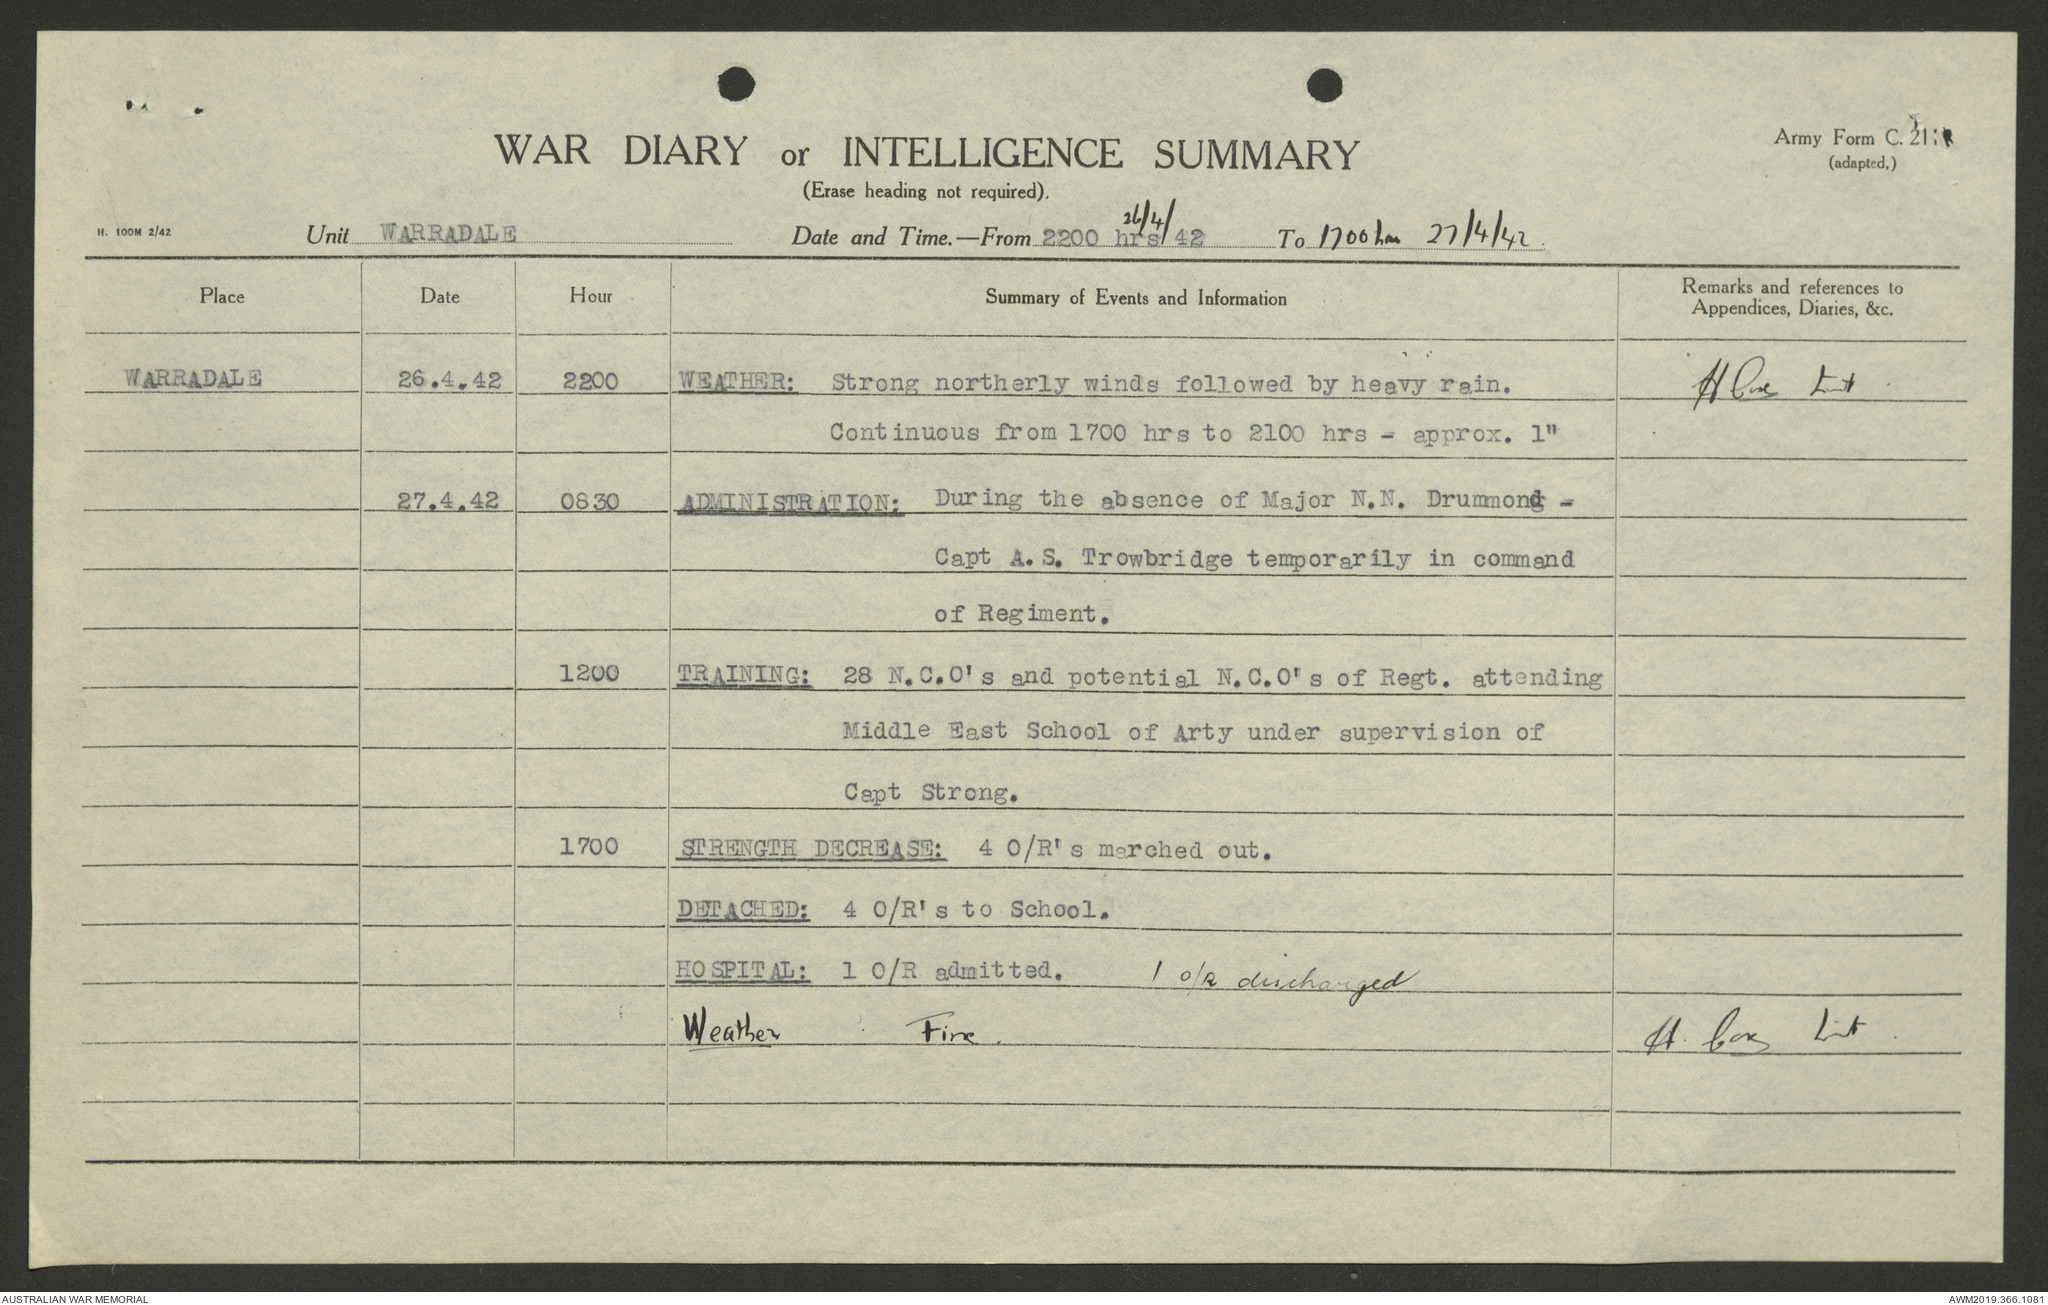 WAR DIARY or INTELLIGENCE SUMMARY
Army Form C.
(adapted,)
(Erase heading not required).
H. 100M 2/42
Unit WARRADALE Date and Time.—From 2200 hrs 26/4/42 To 1700 hrs 27/4/42.
Place Date Hour Summary of Events and Information Remarks and references to
Appendices, Diaries, &c.
WARRADALE 26.4.42 2200 WEATHER: Strong northerly winds followed by heavy rain. H Cox Lieut
Continuous from 1700 hrs to 2100 hrs - approx. 1"
27.4.42 0830 ADMINISTRATION: During the absence of Major N.N. Drummond -
Capt A.S. Trowbridge temporarily in command
of Regiment.
1200 TRAINING: 28 N.C.O's and potential N.C.O's of Regt. attending
Middle East School of Arty under supervision of
Capt Strong.
1700 STRENGTH DECREASE: 4 O/R's marched out.
DETACHED: 4 O/R's to School.
HOSPITAL: 1 O/R admitted. 1 o/R discharged
Weather : Fine. H. Cox Lieut.
AUSTRALIAN WAR MEMORIAL AWM2019.366.1081